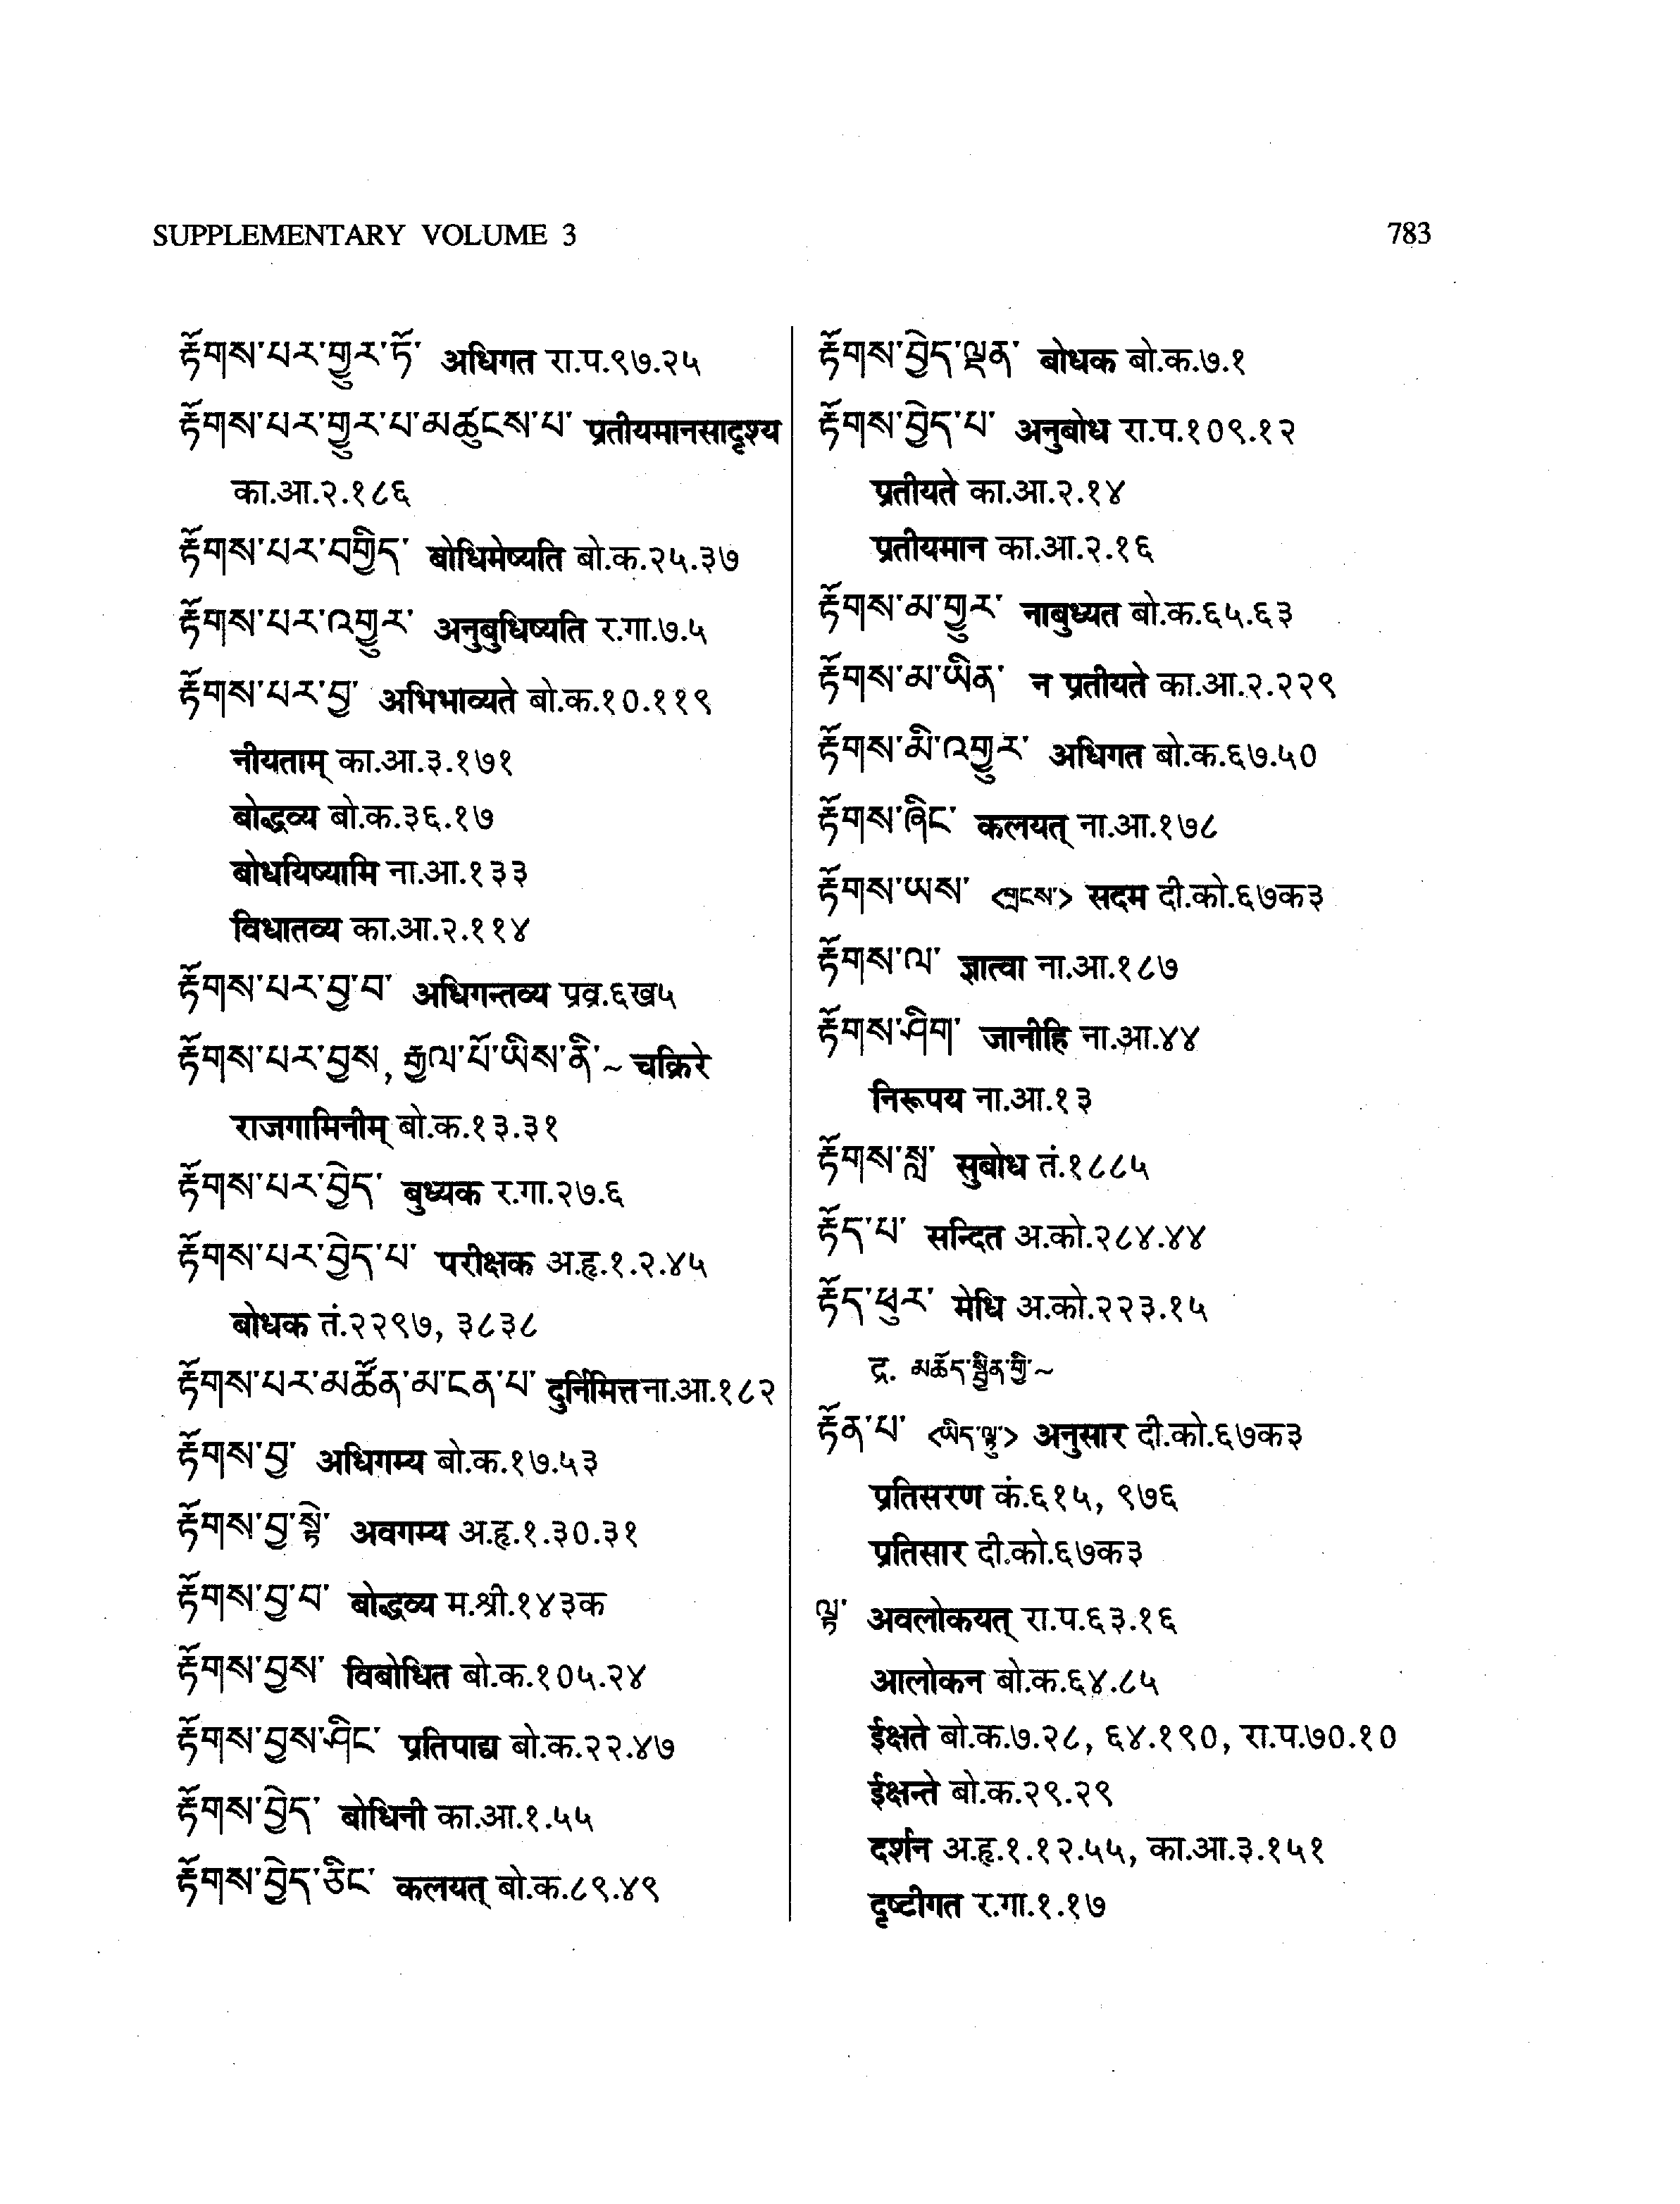 SUPPLEMENTARY VOLUME 3
783
རྟོགས་པར་གྱུར་ཏོ་ अधिगत रा.प.९७.२५
རྟོགས་པར་གྱུར་པ་མཚུངས་པ་ प्रतीयमानसादृश्य
का.आ.२.१८६
རྟོགས་པར་བགྱིད་ बोधिमेष्यति बो.क.२५.३७
རྟོགས་པར་འགྱུར་ अनुबुधिष्यति र.गा.७.५
རྟོགས་པར་བྱ་ अभिभाव्यते बो.क.१0.११९
नीयताम् का.आ.३.१७१
बोद्धव्य बो.क.३६.१७
बोधयिष्यामि ना.आ.१३३
विधातव्य का.आ.२.११४
རྟོགས་པར་བྱ་བ་ अधिगन्तव्य प्रव्र.६ख५
རྟོགས་པར་བྱས, རྒྱལ་པོ་ཡིས་ནི་~ चक्रिरे
राजगामिनीम् बो.क.१३.३१
རྟོགས་པར་བྱེད་ बुध्यक र.गा.२७.६
རྟོགས་པར་བྱེད་པ་ परीक्षक अ.हृ.१.२.४५
बोधक तं.२२९७, ३८३८
རྟོགས་པར་མཚོན་མ་ངན་པ་ दुर्निमित्त ना.आ.१८२
རྟོགས་བྱ་ अधिगम्य बो.क.१७.५३
རྟོགས་བྱ་སྟེ་ अवगम्य अ.हृ.१.३0.३१
རྟོགས་བྱ་བ་ बोद्धव्य म.श्री.१४३क
རྟོགས་བྱས་ विबोधित बो.क.१0५.२४
རྟོགས་བྱས་ཤིང་ प्रतिपाद्य बो.क.२२.४७
རྟོགས་བྱེད་ बोधिनी का.आ.१.५५
རྟོགས་བྱེད་ཅིང་ कलयत् बो.क.८९.४९
རྟོགས་བྱེད་ལྡན་ बोधक बो.क.७.१
རྟོགས་བྱེད་པ་ अनुबोध रा.प.१0९.१२
प्रतीयते का.आ.२.१४
प्रतीयमान का.आ.२.१६
རྟོགས་མ་གྱུར་ नाबुध्यत बो.क.६५.६३
རྟོགས་མ་ཡིན་ न प्रतीयते का.आ.२.२२९
རྟོགས་མི་འགྱུར་ अधिगत बो.क.६७.५0
རྟོགས་ཞིང་ कलयत् ना.आ.१७८
རྟོགས་ཡས་ <གྲངས་> सदम दी.को.६७क३
རྟོགས་ལ་ ज्ञात्वा ना.आ.१८७
རྟོགས་ཤིག་ जानीहि ना.आ.४४
निरूपय ना.आ.१३
རྟོགས་སླ་ सुबोध तं.१८८५
རྟོད་པ་ सन्दित अ.को.२८४.४४
རྟོད་ཕུར་ मेधि अ.को.२२३.१५
द्र. མཆོད་སྦྱིན་གྱི་~
རྟོན་པ་ <ཡིད་ལྟུ་> अनुसार दी.को.६७क३
प्रतिसरण कं.६१५, ९७६
प्रतिसार दी.को.६७क३
ལྟ་ अवलोकयत् रा.प.६३.१६
आलोकन बो.क.६४.८५
ईक्षते बो.क.७.२८, ६४.१९0, रा.प.७0.१0
ईक्षन्ते बो.क.२९.२९
दर्शन अ.हृ.१.१२.५५, का.आ.३.१५१
दृष्टीगत र.गा.१.१७